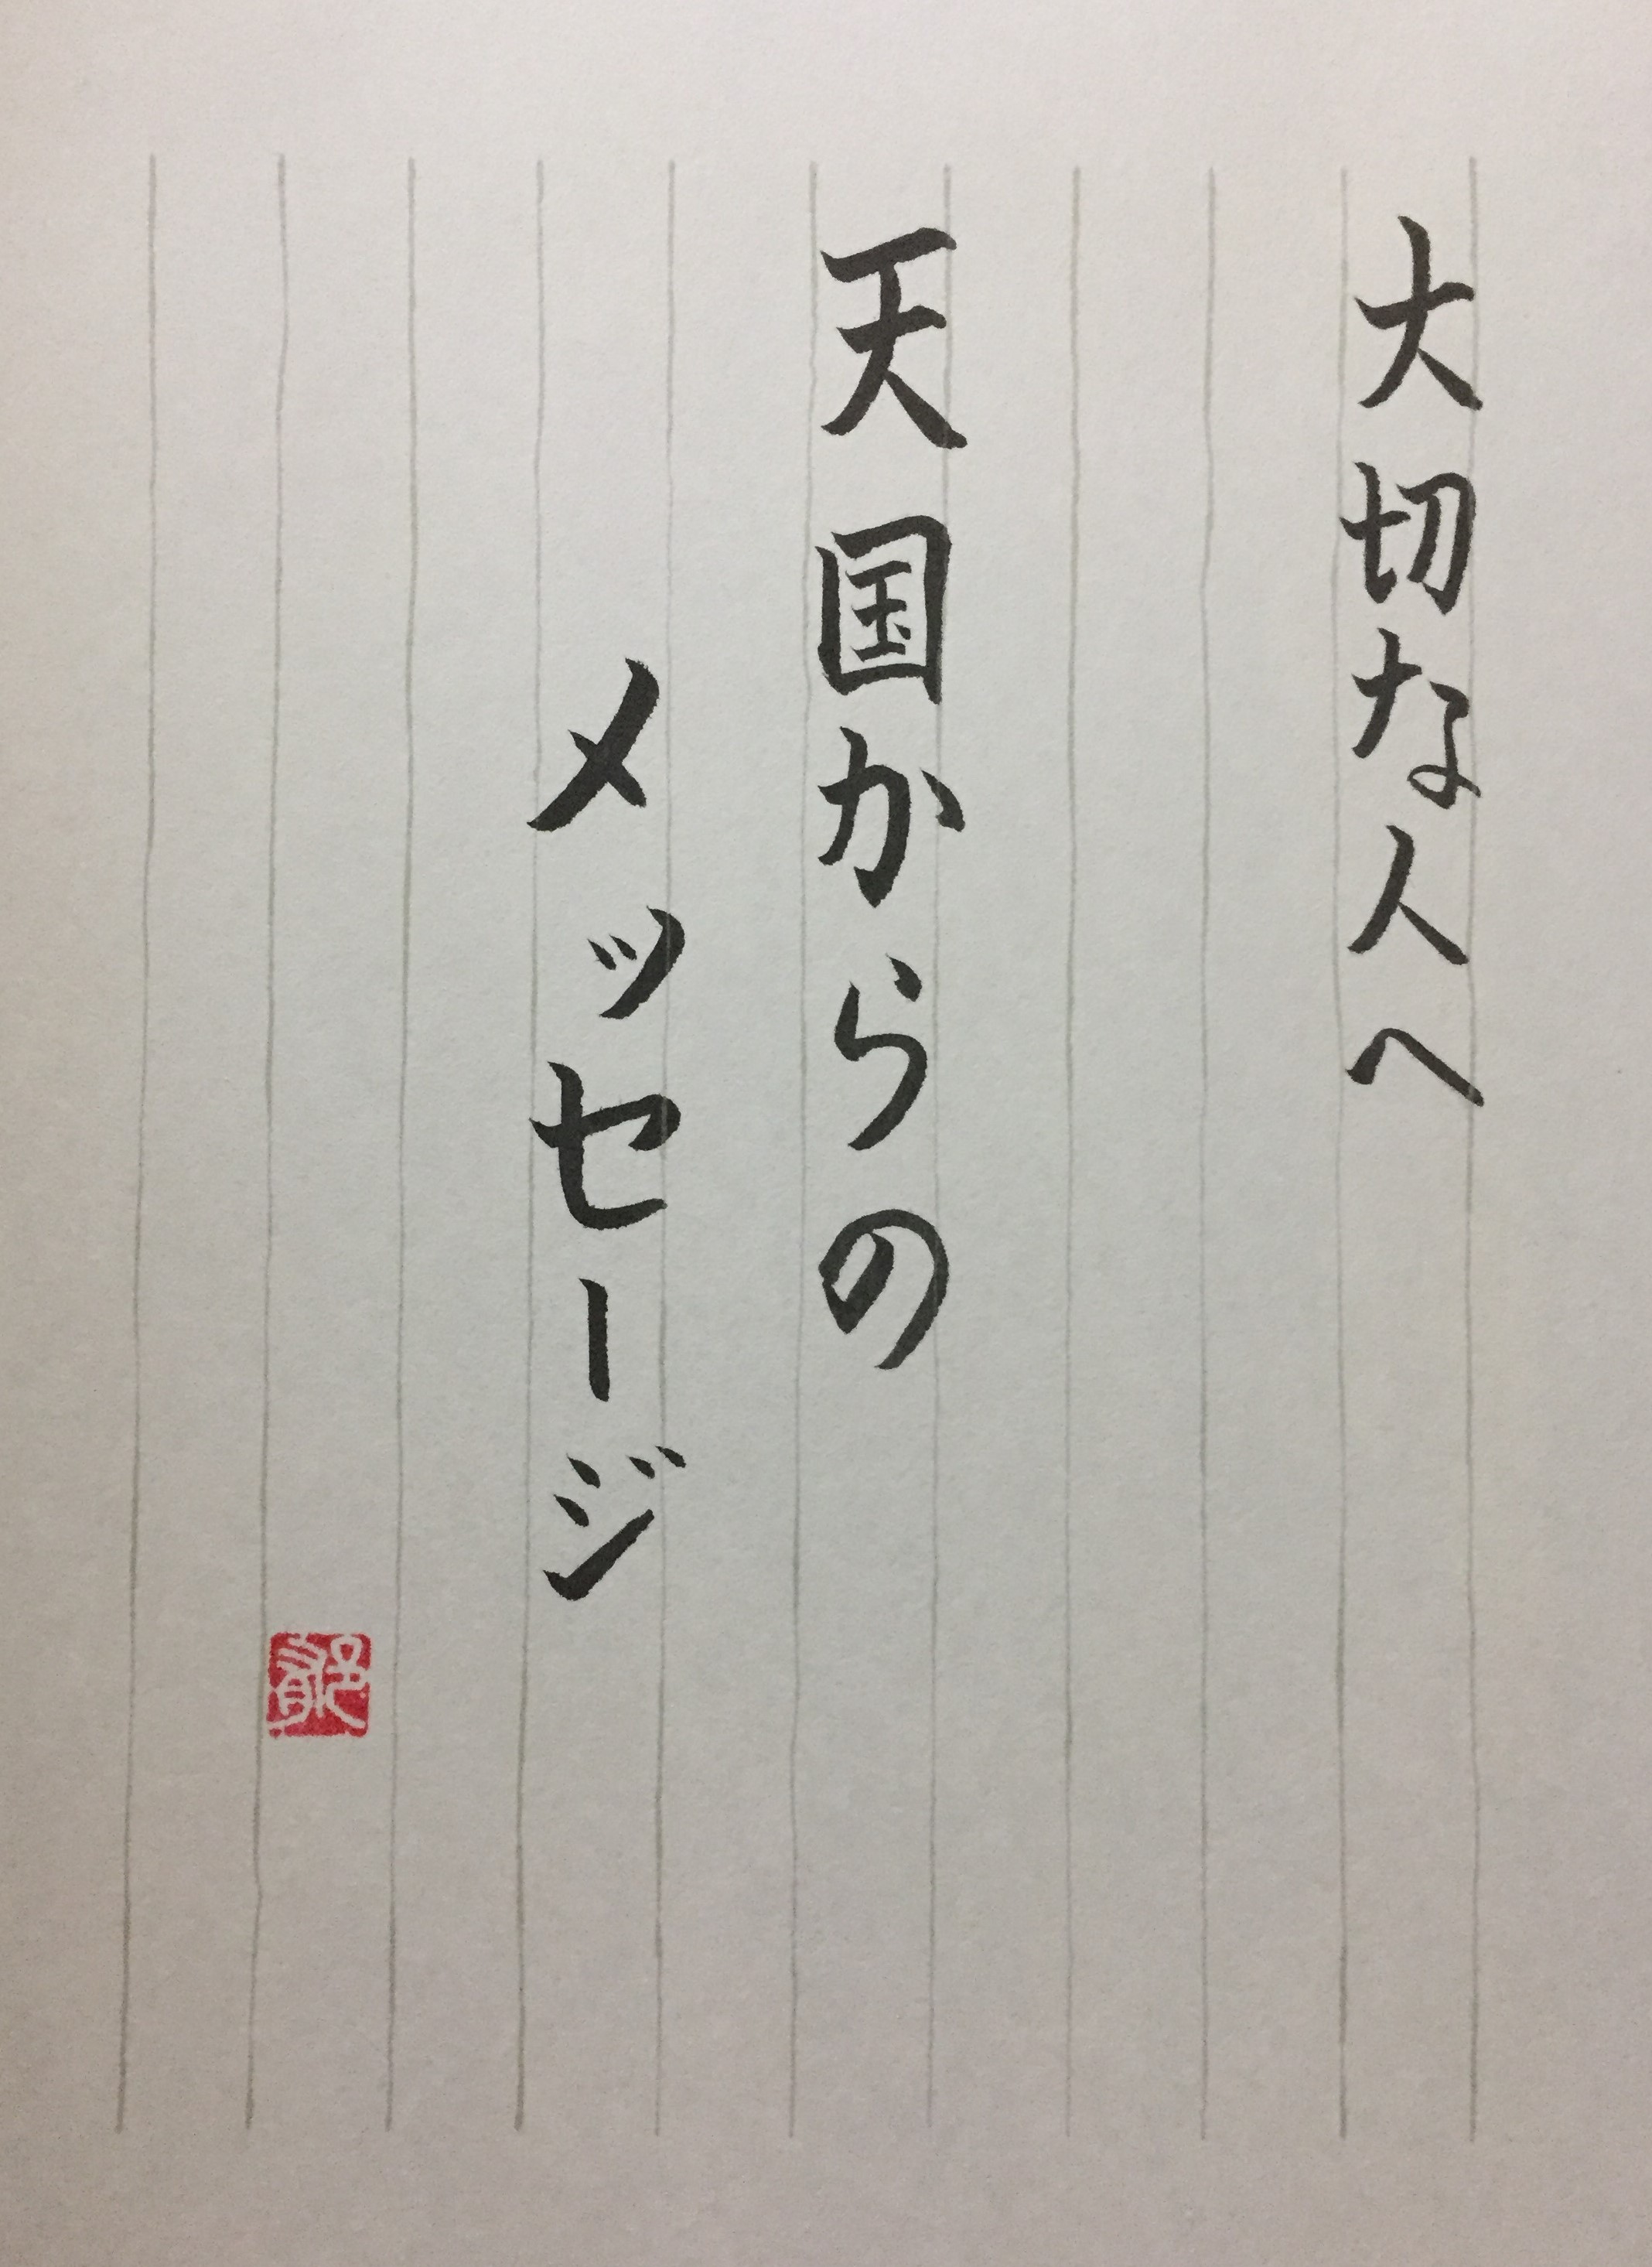 大切な人へ
天国からの
メッセージ